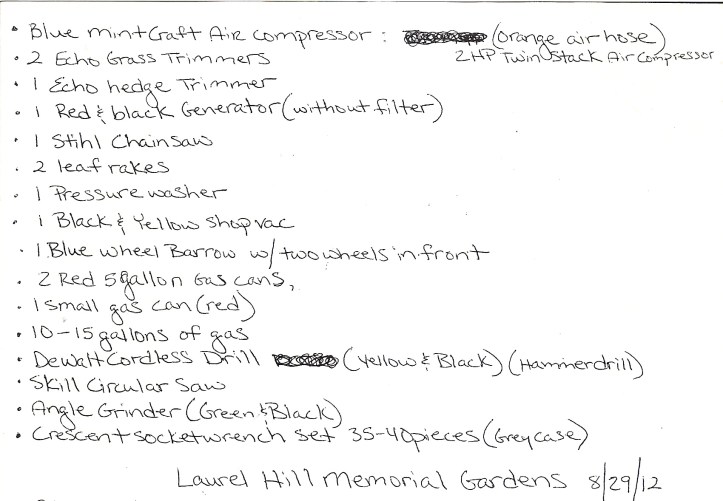 • Blue mintCraft Air compressor : (orange air hose)
2HP Twin Stack Air Compressor
• 2 Echo Grass Trimmers
• 1 Echo hedge Trimmer
• 1 Red & black Generator (without filter)
• 1 Stihl Chainsaw
• 2 leaf rakes
• 1 Pressure washer
• 1 Black & Yellow shop vac
• 1 Blue wheel Barrow w/ two wheels in front
• 2 Red 5 gallon Gas cans,
• 1 small gas can (red)
• 10-15 gallons of gas
• Dewalt Cordless Drill (Yellow & Black) (Hammerdrill)
• Skill Circular Saw
• Angle Grinder (Green & Black)
• Crescent socket wrench set 35-40 pieces (Grey case)
Laurel Hill Memorial Gardens 8/29/12